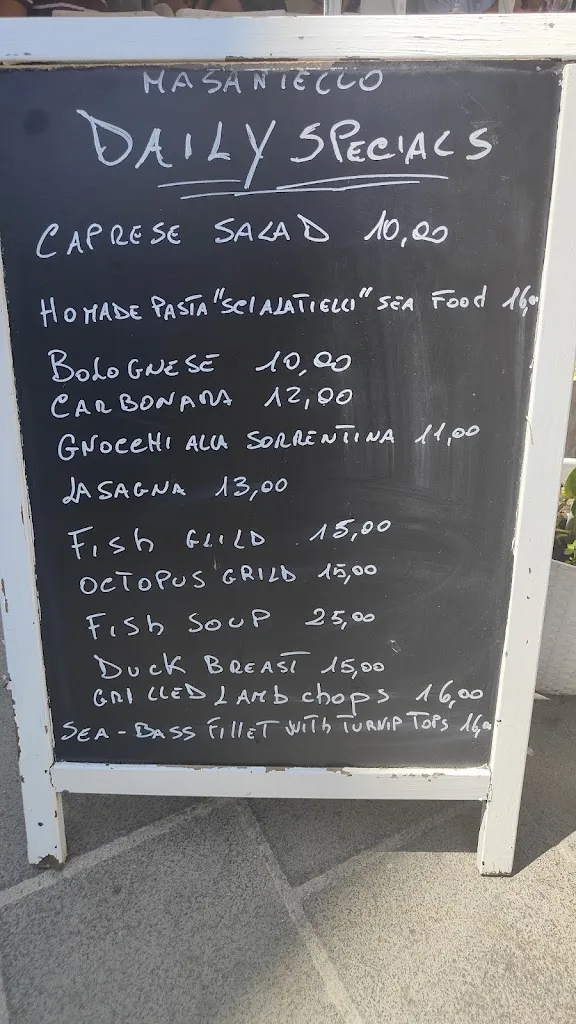 MASANIELLO
DAILY SPECIALS
CAPRESE SALAD 10,00
HOMADE PASTA "SCIALATIELLI" SEA Food 16,00
BOLOGNESE 10,00
CARBONARA 12,00
GNOCCHI ALLA SORRENTINA 11,00
LASAGNA 13,00
Fish GLILD 15,00
OCTOPUS GRILD 15,00
Fish SOUP 25,00
DUCK BREAST 15,00
GRILLED LAMB chops 16,00
SEA-BASS FILLET WITH TURNIP TOPS 16,00